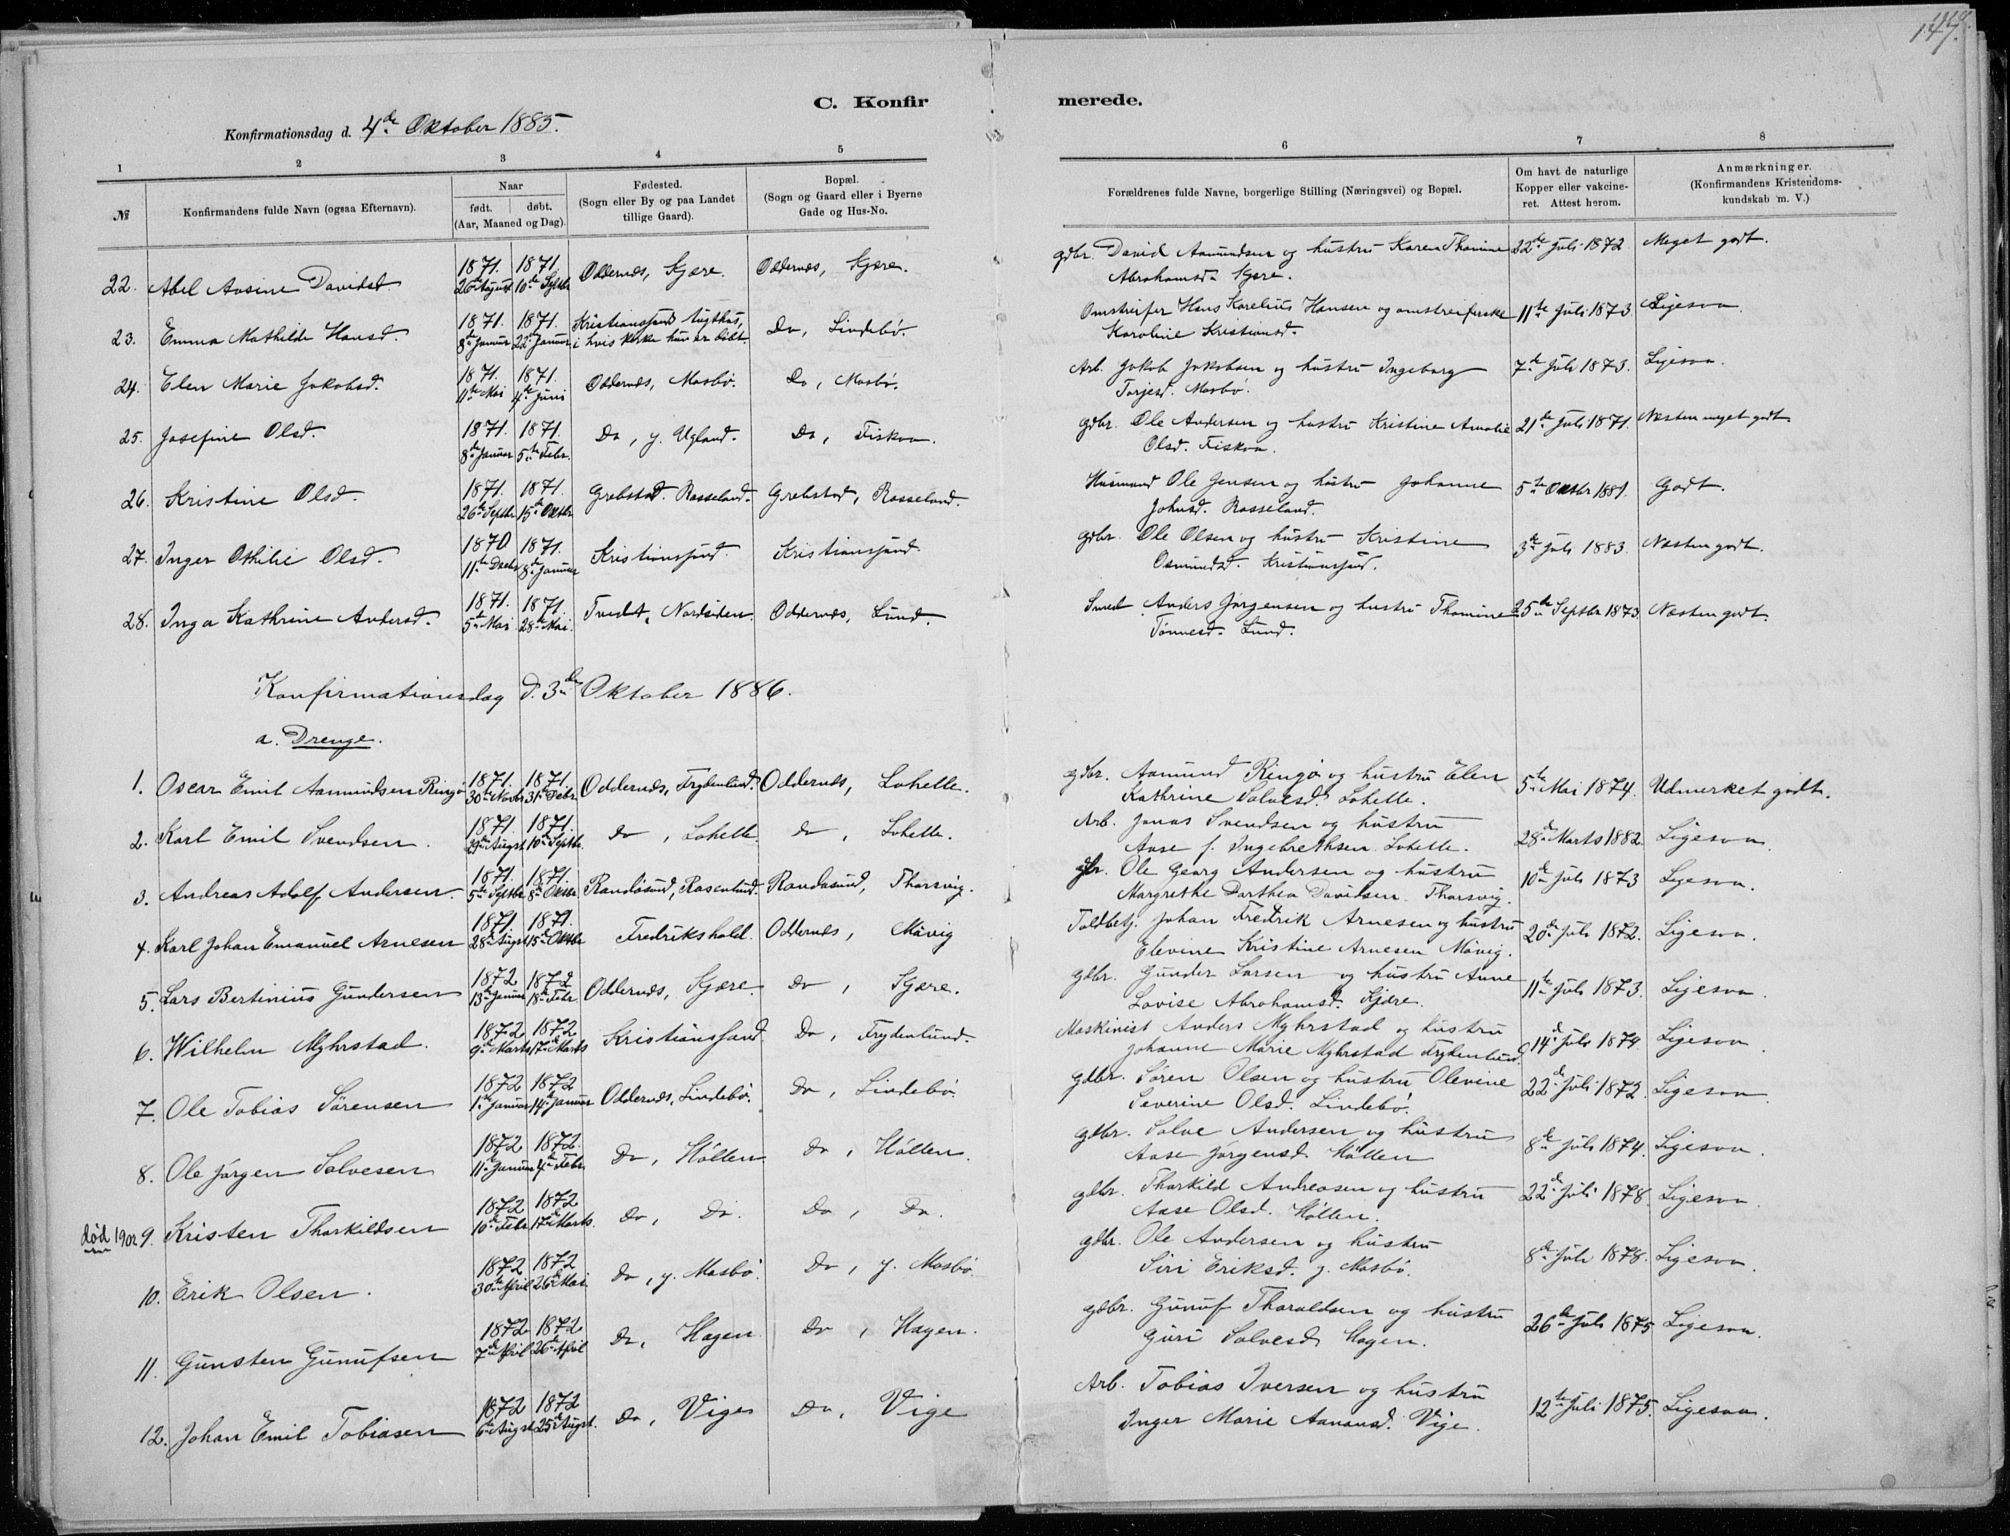 147.
C. Konfirmerede.
Konfirmationsdag d. 4de Oktober 1885.
1 2 3 4 5 6 7 8
№ Konfirmandens fulde Navn (ogsaa Efternavn). Naar født. døbt. (Aar, Maaned og Dag). Fødested. (Sogn eller By og paa Landet tillige Gaard). Bopæl. (Sogn og Gaard eller i Byerne Gade og Hus-No. Forældrenes fulde Navne, borgerlige Stilling (Næringsvei) og Bopæl. Om havt de naturlige Kopper eller vakcineret. Attest herom. Anmærkninger. (Konfirmandens Kristendomskundskab m. V.)
22. Abel Aasine Davidsd. 1871. 26de August 1871. 10de Septbr Oddernes, Kjære. Oddernes, Kjære. gdbr. David Aamundsen og hustru Karen Thomine Abrahamsd. Kjære. 22de Juli 1872. Meget godt.
23. Emma Mathilde Hansd. 1871. 8de Januar 1871. 22de Januar Kristianssands tugthus, i hvis kirke hun er døbt. Do, Lindebø. Omstreifer Hans Karelius Hansen og omstreiferske Karoline Kristiansd. 11te Juli 1873. Ligesaa.
24. Elen Marie Jakobsd. 1871. 11te Mai 1871. 4de Juni Oddernes, Mosbø. Do, Mosbø. Arb. Jakob Jakobsen og hustru Ingeborg Torjesd. Mosbø. 7de Juli 1873. Ligesaa.
25. Josefine Olsd. 1871. 8de Januar 1871. 5te Febr. Do, y. Ugland. Do, Fiskaa. gdbr. Ole Andersen og hustru Kristine Amalie Olsd. Fiskaa. 21de Juli 1871. Næsten meget godt.
26. Kristine Olsd. 1871. 26de Septbr 1871. 15de Oktbr Grebstad. Rosseland. Grebstad, Rosseland. Husmand Ole Jensen og hustru Johanne Johnsd. Rosseland. 5te Oktbr 1881. Godt.
27. Inger Othilie Olsd. 1870 11te Decbr 1871. 8de Januar Kristianssand. Kristianssand. gdbr. Ole Olsen og hustru Kristine Osmundsd. Kristianssand. 3de Juli 1883. Næsten godt.
28. Inga Kathrine Andersd. 1871. 5te Mai 1871. 28de Mai. Tvedt, Nordsiden. Oddernes, Lund. Smed Anders Jørgensen og hustru Thomine Tønnesd. Lund. 25de Septbr 1873. Næsten godt.
Konfirmationsdag d. 3de Oktober 1886.
a. Drenge.
1. Oscar Emil Aamundsen Ringø 1871. 30te Novbr 1871. 31te Febr. Oddernes, Frydenlund. Oddernes, Lohelle. gdbr. Aamund Ringø og hustru Elen Kathrine Salvesd. Lohelle. 5te Mai 1874. Udmerket godt.
2. Karl Emil Svendsen. 1871. 29de Augst 1871. 10de Septbr do, Lohelle. do, Lohelle. Arb. Jonas Svendsen og hustru Aase f. Ingebrethsen Lohelle. 28de Marts 1882. Ligesaa.
3. Andreas Adolf Andersen. 1871. 5te Septbr 1871. 8de Oktbr. Randøsund, Rosenlund. Randøsund, Tharsvig. gbr. Ole Georg Andersen og hustru Margrethe Dorthea Davidsen. Tharsvig. 10de Juli 1873 Ligesaa.
4. Karl Johan Emanuel Arnesen 1871. 28de Augst 1871. 15de Oktbr Fredrikshald. Oddernes, Måvig Toldbetj. Johan Fredrik Arnesen og hustru Elevine Kristine Arnesen Måvig. 20de Juli 1872. Ligesaa.
5. Lars Bertinius Gundersen 1872 13de Januar 1872 18de Febr. Oddernes, Kjære. do, Kjære. gdbr. Gunder Larsen og hustru Anne Lovise Abrahamsd. Kjære. 11te Juli 1873. Ligesaa.
6. Wilhelm Myhrstad. 1872 9de Marts 1872 17de Marts Kristianssand. Do, Frydenlund. Maskinist Anders Myhrstad og hustru Johanne Marie Myhrstad Frydenlund. 14de Juli 1879. Ligesaa.
7. Ole Tobias Sørensen 1872 1te Januar 1872 14de Januar Oddernes, Lindebø. do, Lindebø. gdbr. Søren Olsen og hustru Olevine Severine Olsd. Lindebø. 22de Juli 1872. Ligesaa.
8. Ole Jørgen Salvesen 1872 11te Januar 1872. 4de Febr. Do, Hölten. Do, Hölten. gdbr. Salve Andersen og hustru Aase Jørgensd. Hölten 8de Juli 1874. Ligesaa.
død 1902 9. Kristen Tharkildsen 1872 10de Febr. 1872 17de Marts. do, do. Do, Do. gdbr. Tharkild Andreasen og hustru Aase Olsd. Hölten. 22de Juli 1878. Ligesaa.
10. Erik Olsen. 1872 30te April 1872 26de Mai. Do, y. Mosbø. Do, y. Mosbø. gdbr. Ole Andersen og hustru Siri Eriksd. y. Mosbø. 8de Juli 1878. Ligesaa.
11. Gunsten Gunufsen 1872 7de April 1872 26de April do, Hagen. Do, Hagen. gdbr. Gunuf Tharaldsen og hustru Guri Salvesd. Hagen. 26de Juli 1875. Ligesaa.
12. Johan Emil Tobiasen 1872 6te Augst 1872 25de Augst. do, Vige Do, Vige Arb. Tobias Iversen og hustru Inger Marie Aanansd. Vige. 12te Juli 1875. Ligesaa.